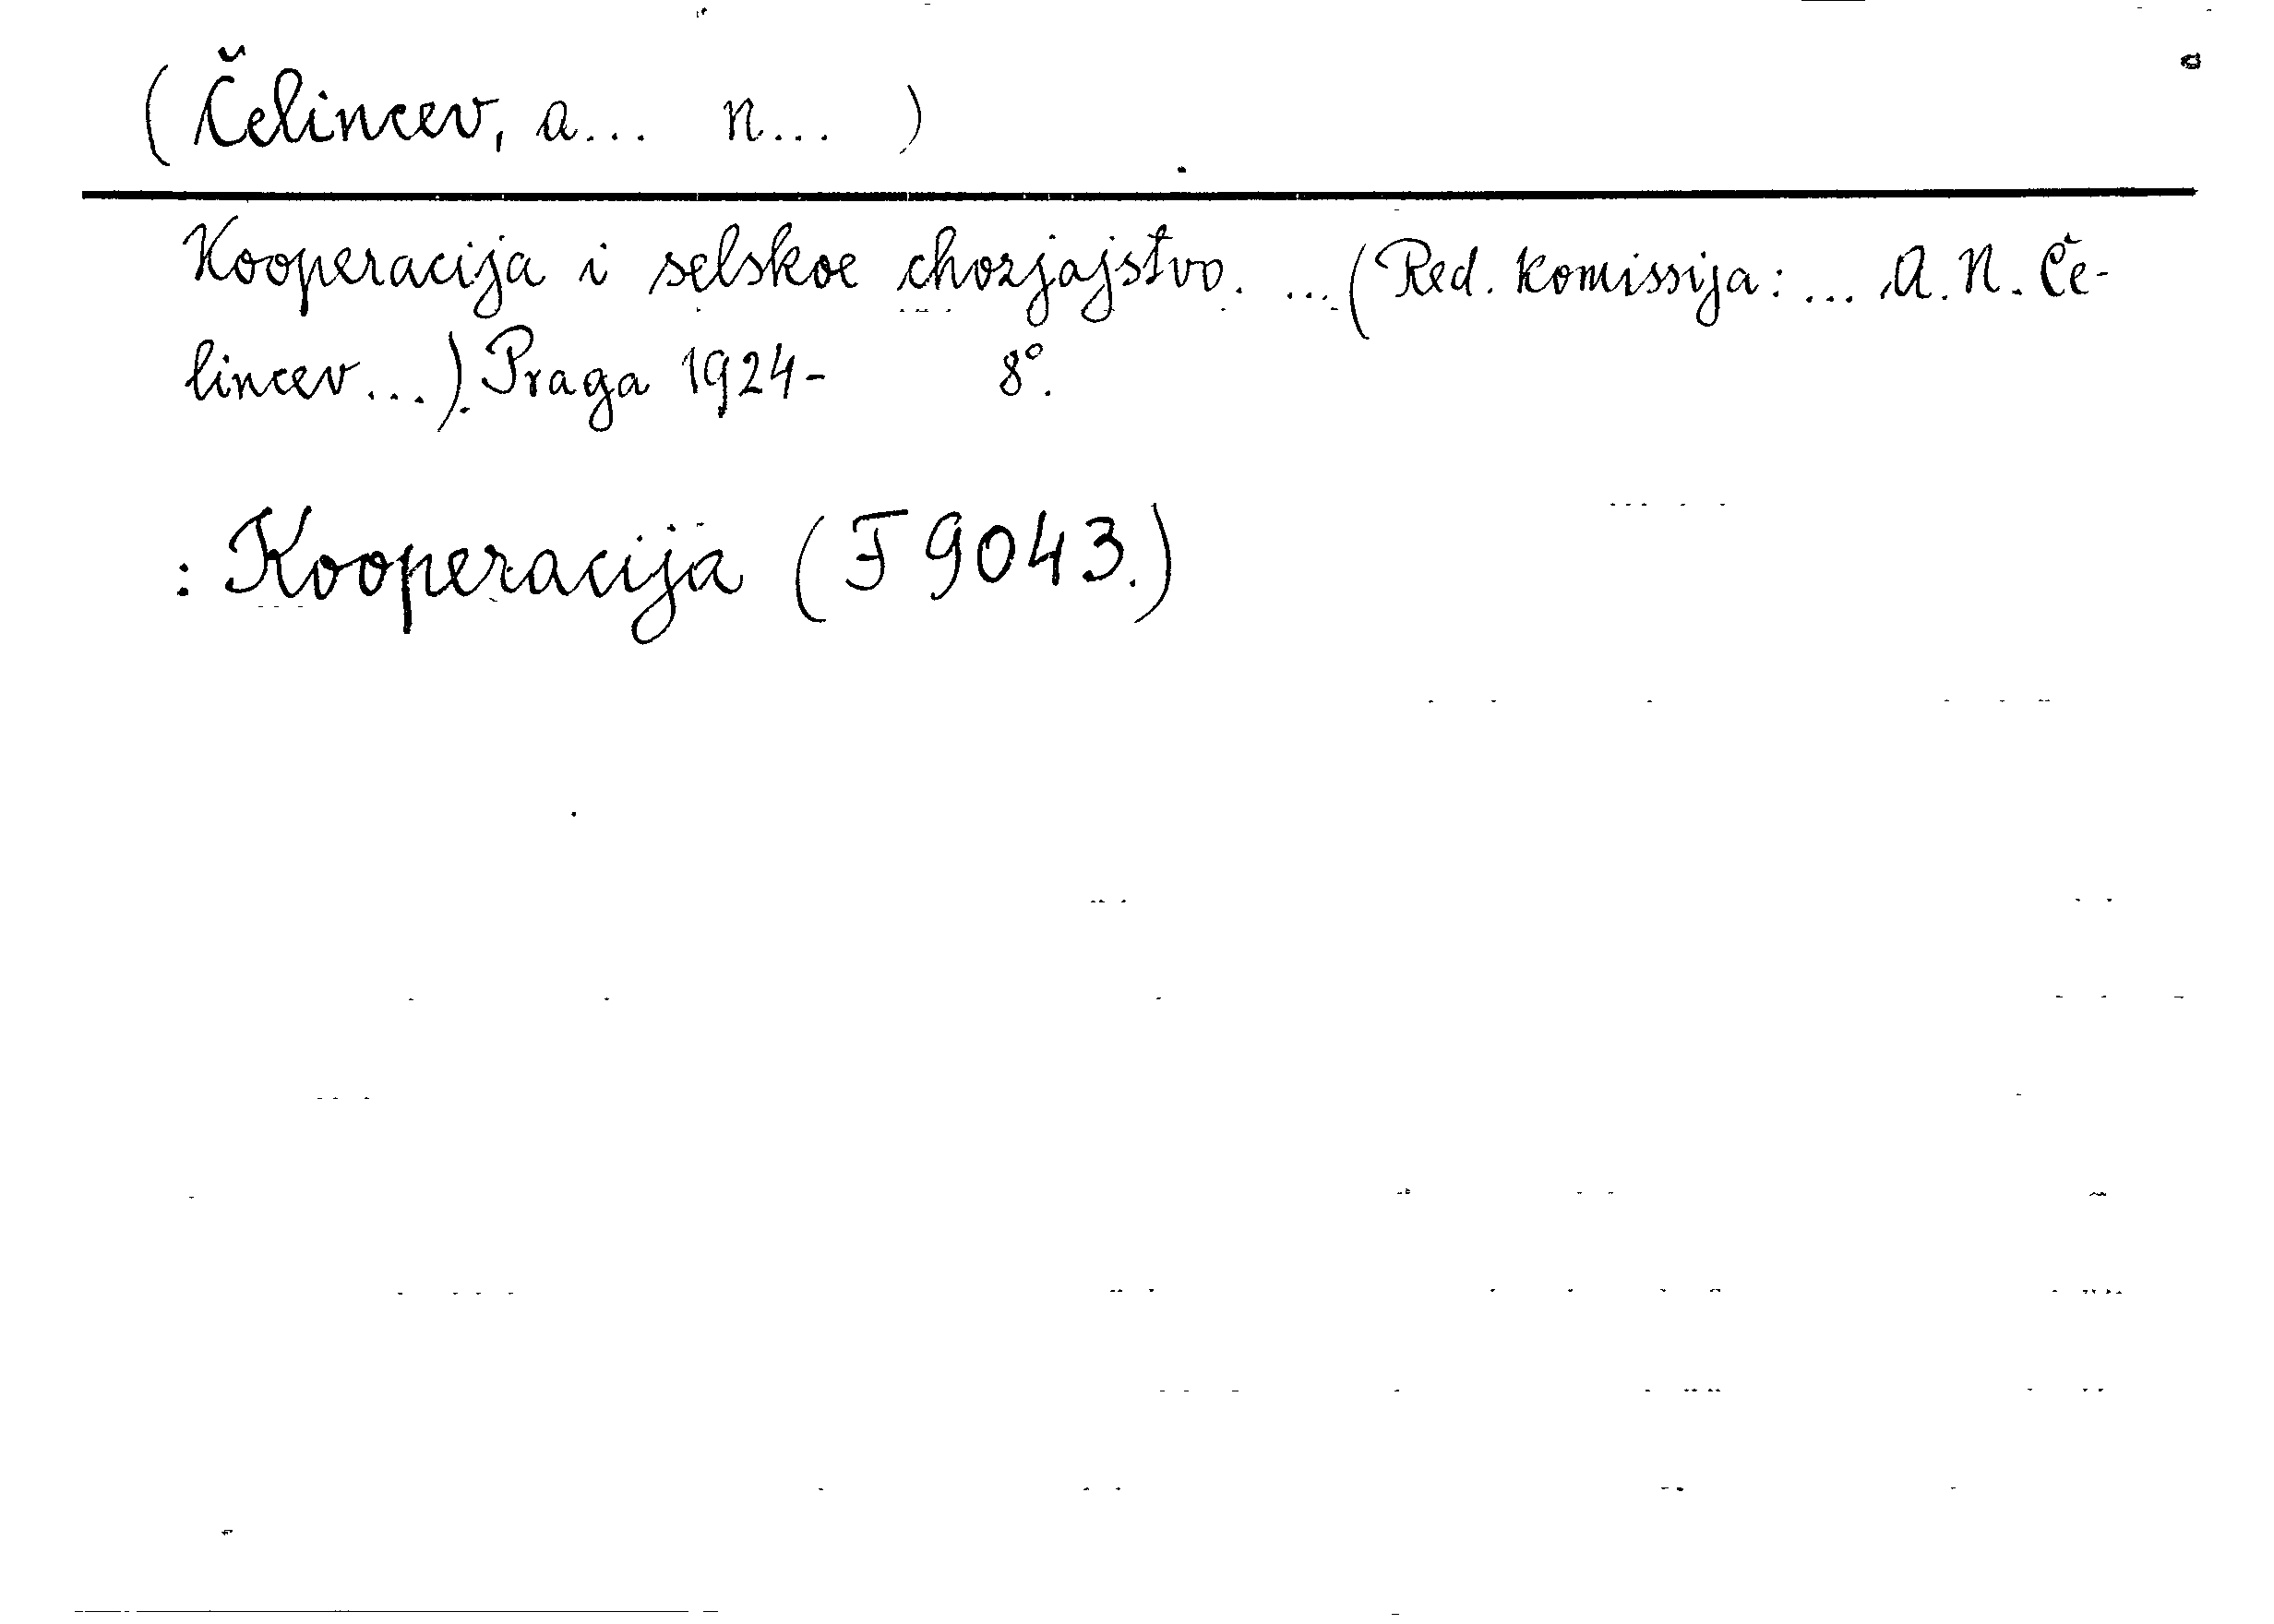 (Čelincev, A... N... )
Kooperacija i selskoe chozjajstvo. ... (Red. komissija: ... A. N. Če-
lincev...). Praga 1924- 8°.
: Kooperacija (F 9043.)